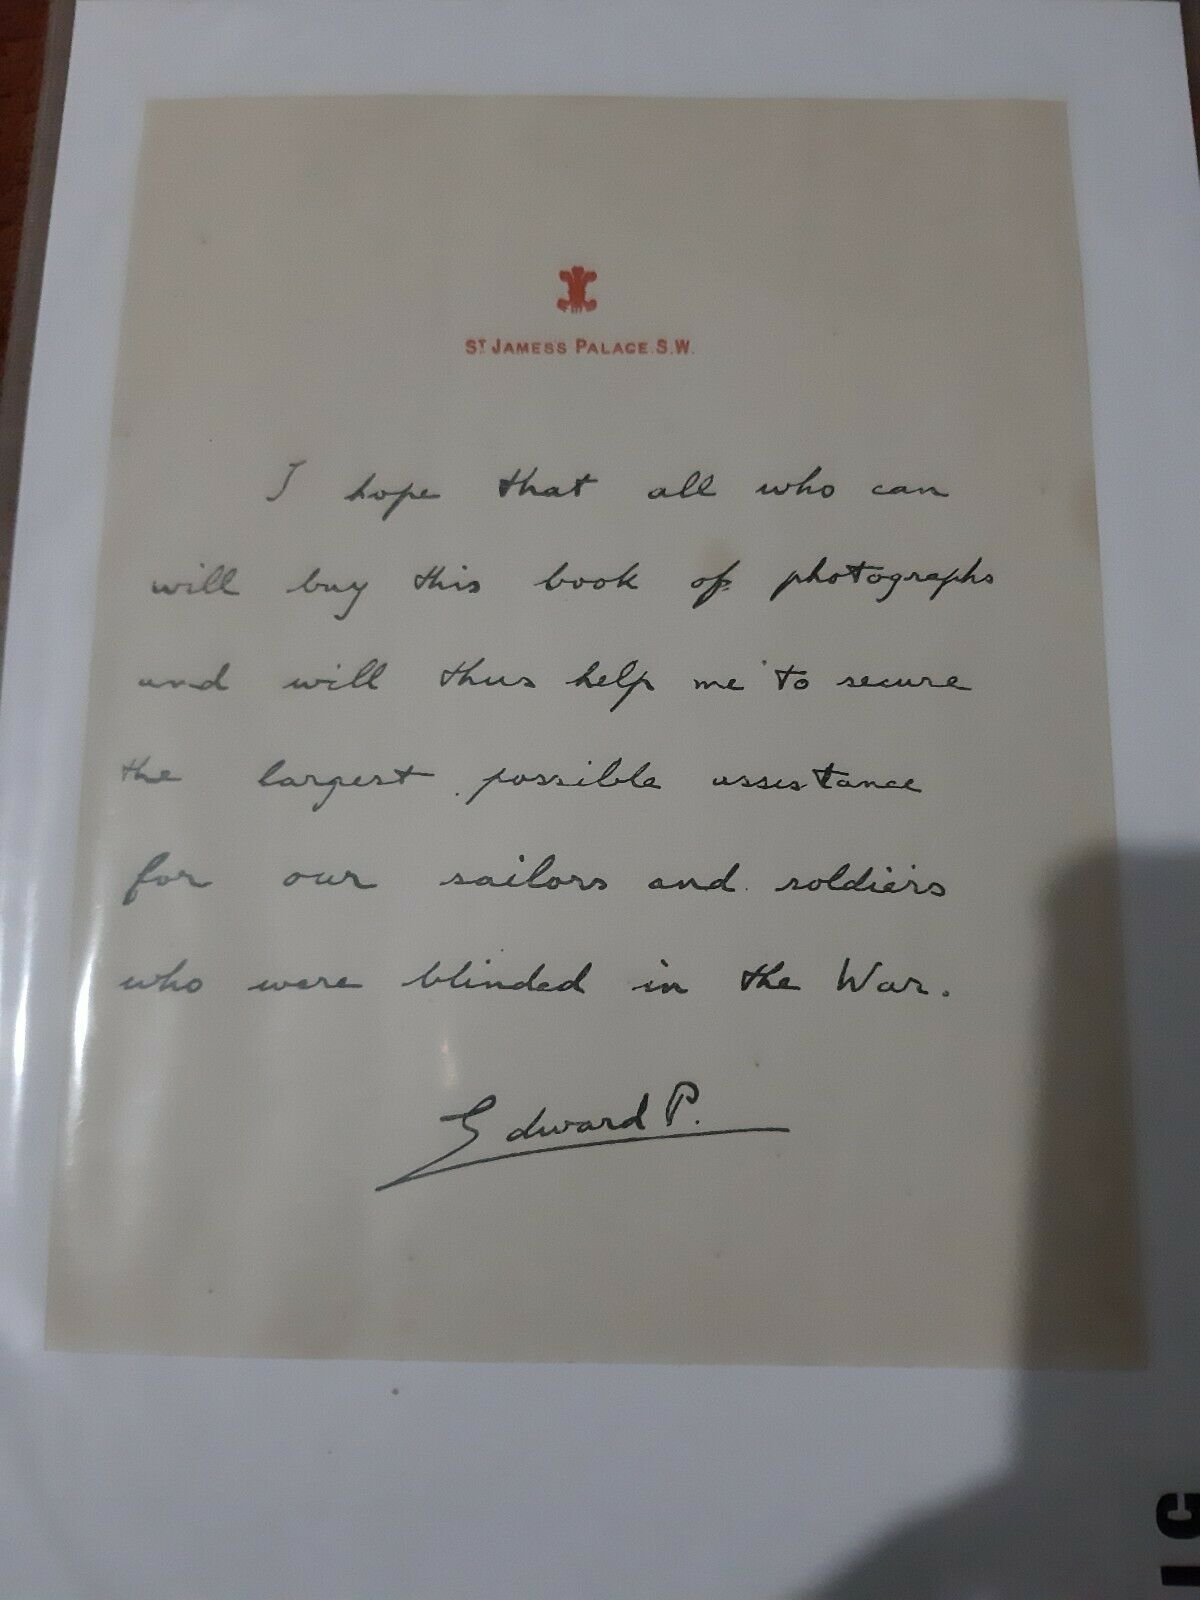 ST JAMESS PALACE. S.W.
I hope that all who can
will buy this book of photographs
and will thus help me to secure
the largest possible assistance
for our sailors and soldiers
who were blinded in the War.
Edward P.